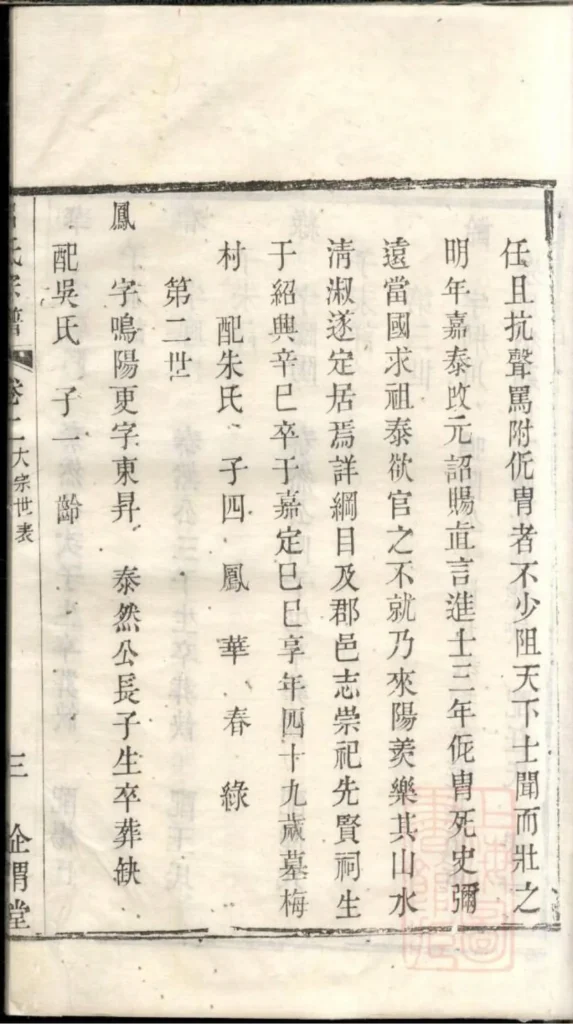 任且抗聲罵附侂冑者不少阻天下士聞而壯之
明年嘉泰改元詔賜直言進士三年侂冑死史彌
遠當國求祖泰欲官之不就乃來陽羨樂其山水
清淑遂定居焉詳綱目及郡邑志崇祀先賢祠生
于紹興辛巳卒于嘉定巳巳享年四十九歲墓梅
村 配朱氏 子四 鳳 華 春 綠
第二世
鳳 字鳴陽更字東昇 泰然公長子生卒葬缺
配吳氏 子一 齡
呂氏宗譜 卷二 大宗世表 三 企渭堂
上海圖書館藏